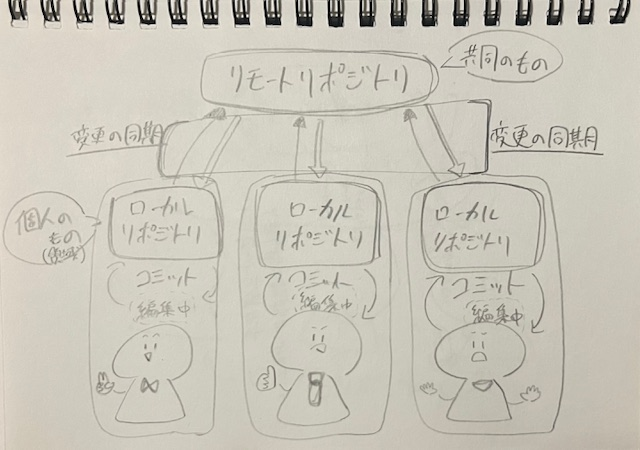 共同のもの
リモートリポジトリ
変更の同期
変更の同期
個人の
もの
ローカル
リポジトリ
コミット
編集中
ローカル
リポジトリ
コミット
編集中
ローカル
リポジトリ
コミット
編集中